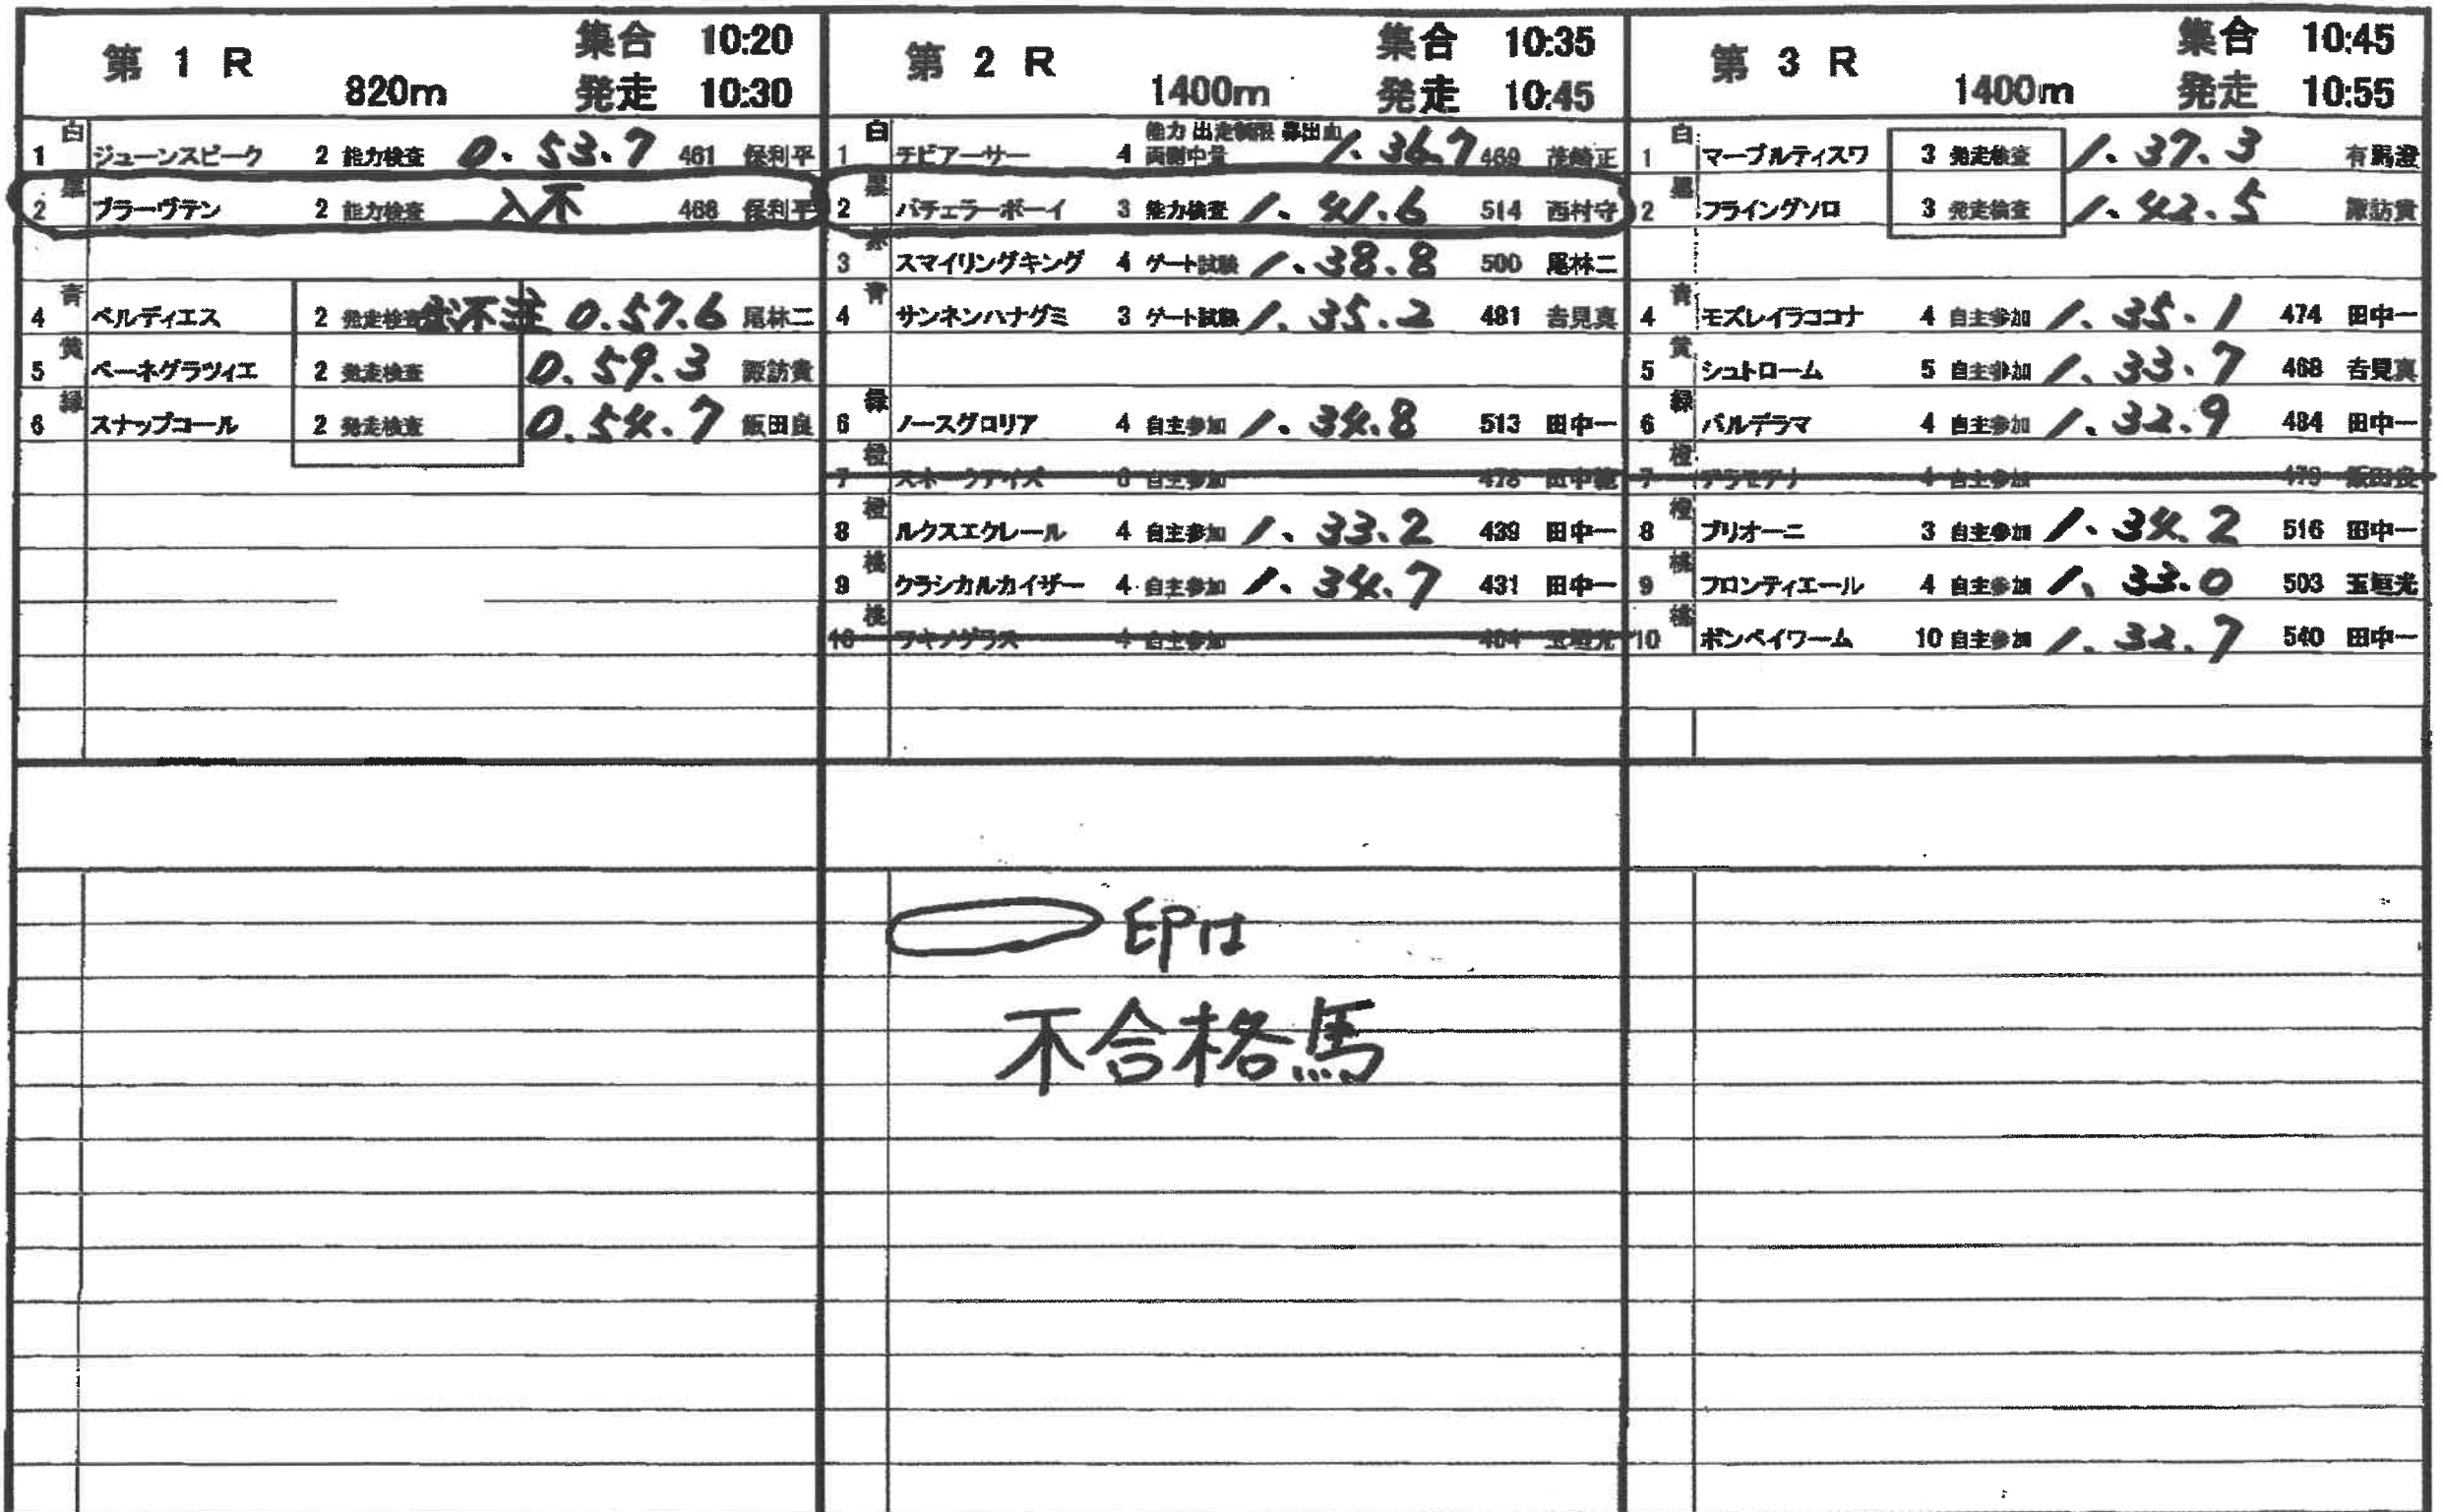 第 1 R 820m 集合 10:20 発走 10:30
1 白 ジューンスピーク 2 能力検査 0.53.7 461 保利平
2 黒 ブラーヴテン 2 能力検査 入不 468 保利平
4 青 ベルディエス 2 発走検査 0.57.6 尾林二
5 黄 ベーネグラツィエ 2 発走検査 0.59.3 諏訪貴
6 緑 スナップコール 2 発走検査 0.54.7 飯田良
第 2 R 1400m 集合 10:35 発走 10:45
1 白 テビアーサー 4 能力 出走制限 鼻出血 両側中量 1.36.7 469 茂崎正
2 黒 バチェラーボーイ 3 能力検査 1.41.6 514 西村守
3 赤 スマイリングキング 4 ゲート試験 1.38.8 500 尾林二
4 青 サンネンハナグミ 3 ゲート試験 1.35.2 481 吉見真
6 緑 ノースグロリア 4 自主参加 1.34.8 513 田中一
7 橙 スネークアイズ 6 自主参加 478
8 橙 ルクスエクレール 4 自主参加 1.33.2 439 田中一
9 桃 クラシカルカイザー 4 自主参加 1.34.7 431 田中一
10 桃 ワキノグラス 4 自主参加 玉垣光
第 3 R 1400m 集合 10:45 発走 10:55
1 白 マーブルティスワ 3 発走検査 1.37.3 有馬澄
2 黒 フライングソロ 3 発走検査 1.42.5 諏訪貴
4 青 モズレイラココナ 4 自主参加 1.35.1 474 田中一
5 黄 シュトローム 5 自主参加 1.33.7 468 吉見真
6 緑 バルデラマ 4 自主参加 1.32.9 484 田中一
7 橙 4 自主参加 479 飯田良
8 橙 ブリオーニ 3 自主参加 1.34.2 516 田中一
9 桃 フロンティエール 4 自主参加 1.33.0 503 玉垣光
10 桃 ボンペイワーム 10 自主参加 1.32.7 540 田中一
印は
不合格馬